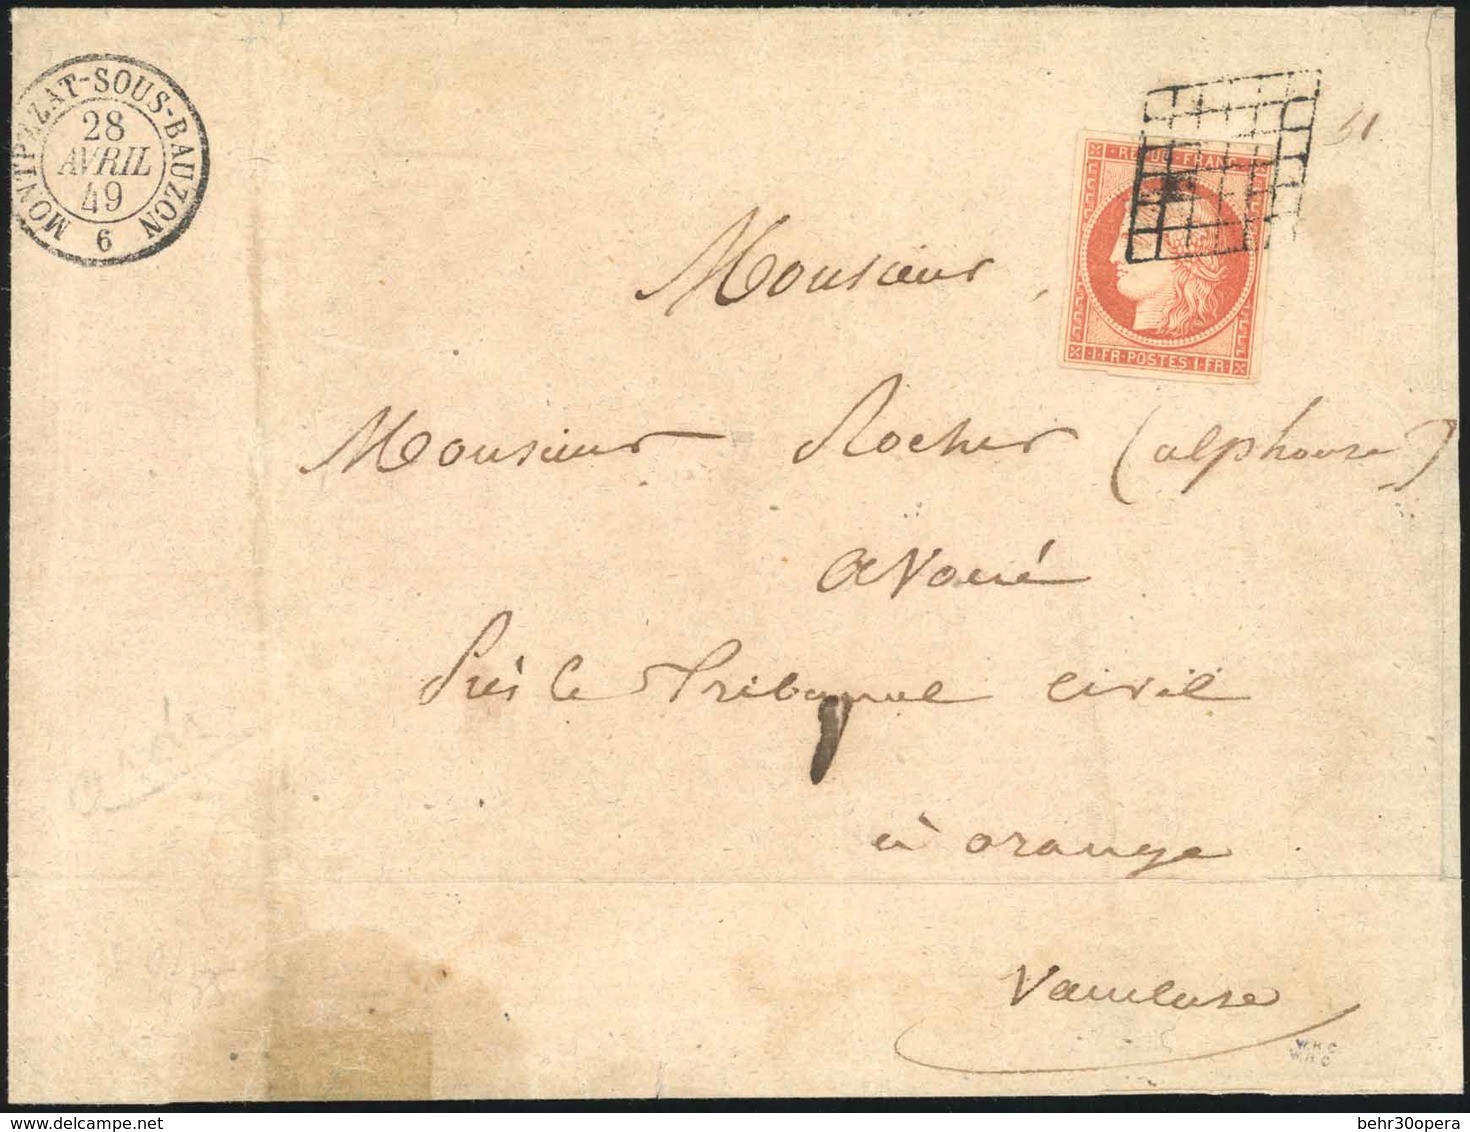 MONTPEZAT-SOUS-BAUZON
28
AVRIL
49
6
REPUB·FRANC
1·FR·POSTES·1·FR
51
Monsieur
Monsieur Rocher (alphonse)
avoué
Près le Tribunal civil
à orange
Vaucluse
W.H.C.
W.H.C
behr30opera